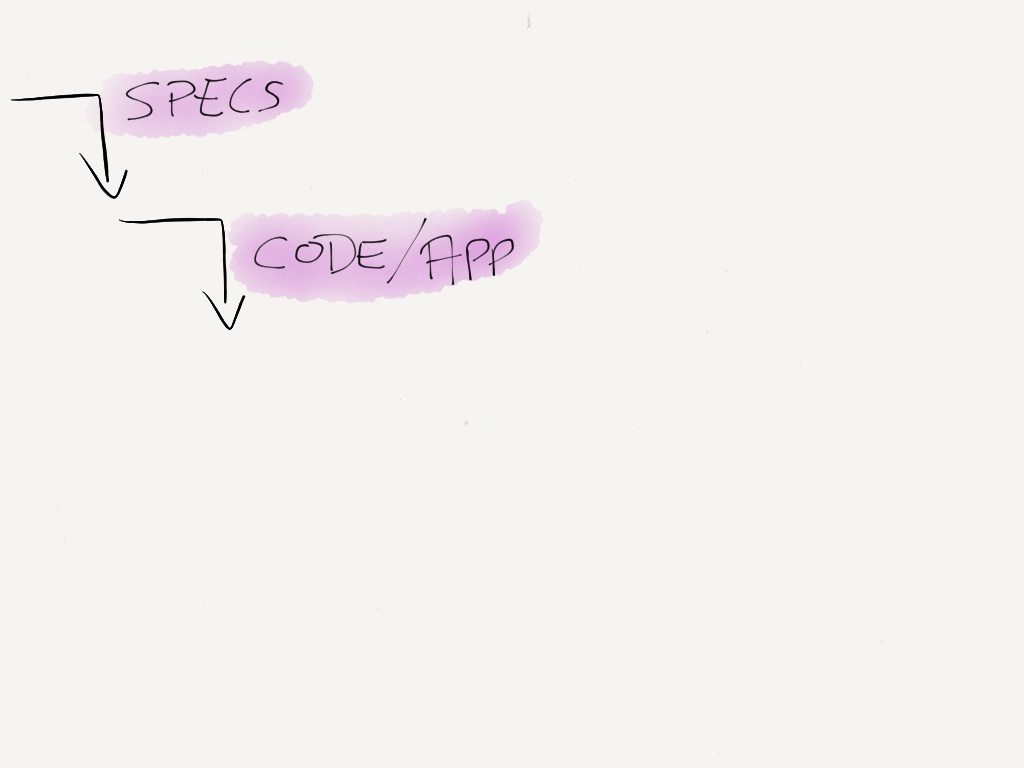 SPECS
CODE/APP